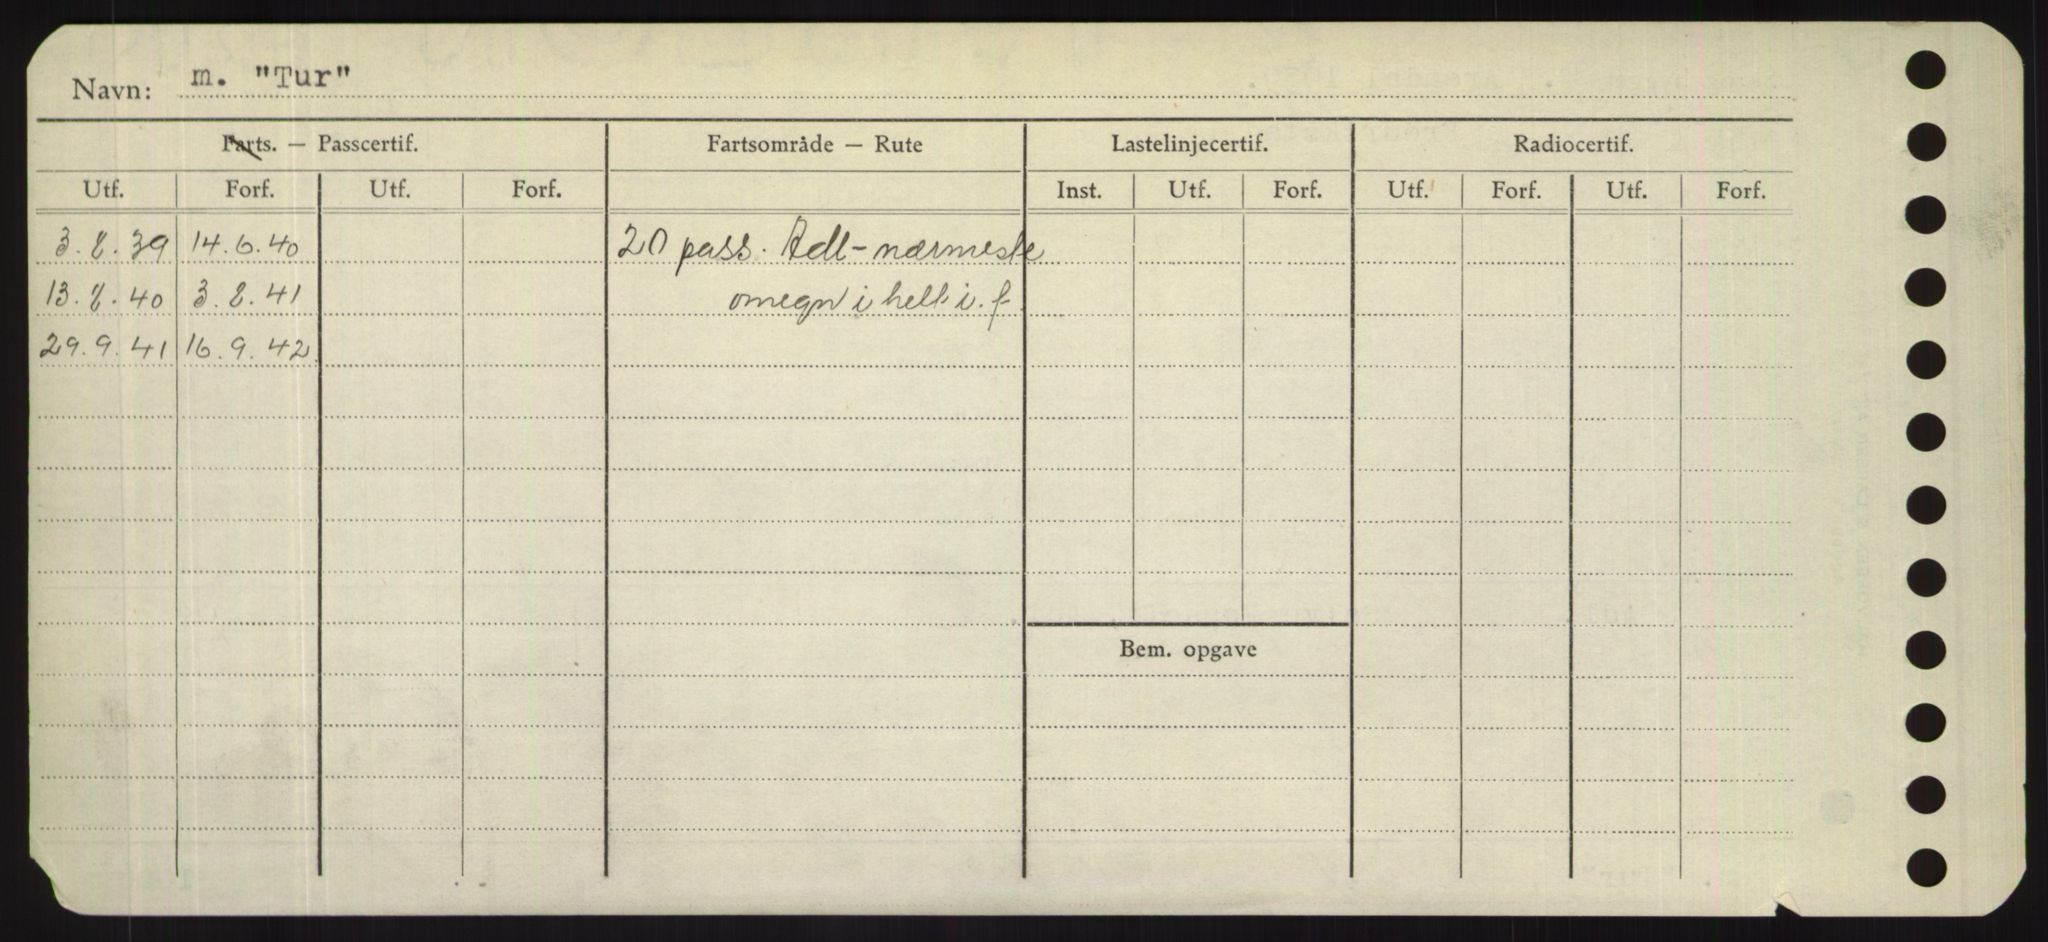 Navn: m. "Tur"
Farts. — Passcertif. Fartsområde — Rute Lastelinjecertif. Radiocertif.
Utf. Forf. Utf. Forf. Inst. Utf. Forf. Utf. Forf. Utf. Forf.
3.8.39 14.6.40 20 pass. Adl-nærmeste
13.8.40 3.8.41 omegn i helt i. f.
29.9.41 16.9.42
Bem. opgave